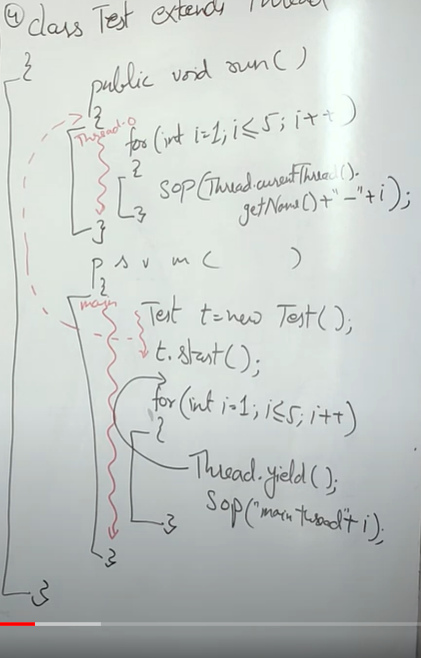 ④ class Test extends Thread
{
public void run()
{
Thread-0
for(int i=1; i≤5; i++)
{
SOP(Thread.currentThread().
getName()+"-"+i);
}
}
p s v m (        )
{
main
Test t=new Test();
t.start();
for(int i=1; i≤5; i++)
{
Thread.yield();
SOP("main thread"+i);
}
}
}